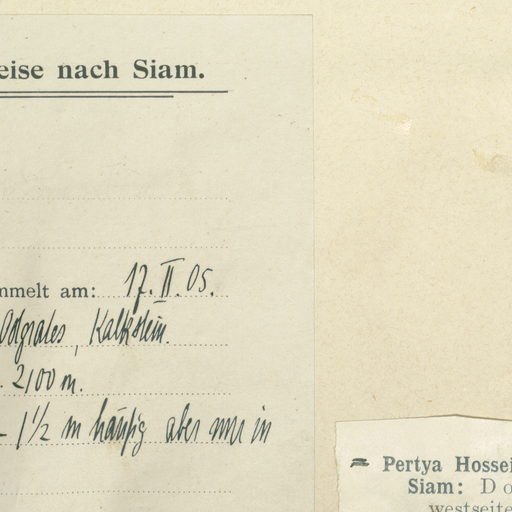 eise nach Siam.
mmelt am: 17. II. 05.
Ostgrates, Kalkstein.
. 2100 m.
- 1 1/2 m häufig aber nur in
= Pertya Hossei
Siam: Do
westseite